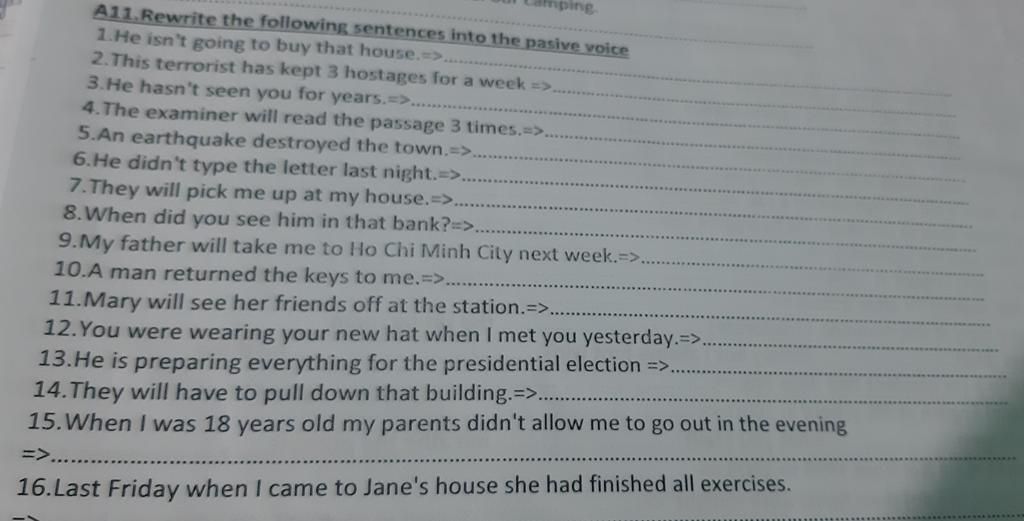 camping.
A11.Rewrite the following sentences into the pasive voice
1.He isn't going to buy that house.=>....................
2.This terrorist has kept 3 hostages for a week =>....................
3.He hasn't seen you for years.=>....................
4.The examiner will read the passage 3 times.=>....................
5.An earthquake destroyed the town.=>....................
6.He didn't type the letter last night.=>....................
7.They will pick me up at my house.=>....................
8.When did you see him in that bank?=>....................
9.My father will take me to Ho Chi Minh City next week.=>....................
10.A man returned the keys to me.=>....................
11.Mary will see her friends off at the station.=>....................
12.You were wearing your new hat when I met you yesterday.=>....................
13.He is preparing everything for the presidential election =>....................
14.They will have to pull down that building.=>....................
15.When I was 18 years old my parents didn't allow me to go out in the evening
=>....................
16.Last Friday when I came to Jane's house she had finished all exercises.
=>....................